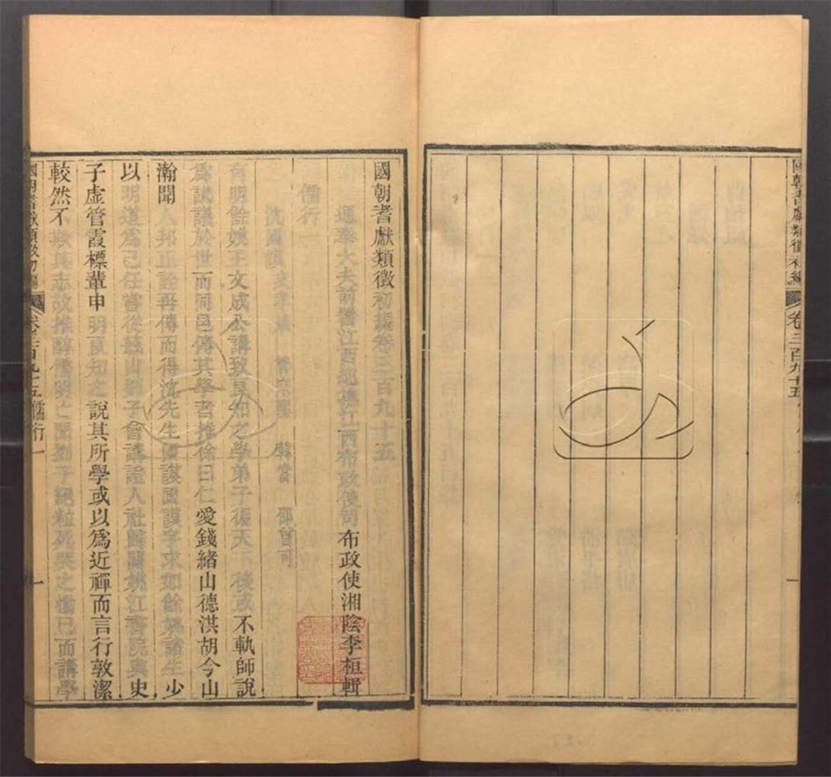 國朝耆獻類徵初編 卷三百九十五
國朝耆獻類徵初編卷三百九十五
通奉大夫前署江西巡撫江西布政使司布政使湘陰李桓輯
儒行一
沈國模 史孝咸 管宗聖 韓當 邵曾可
有明餘姚王文成公講致良知之學弟子徧天下後或不軌師說
爲詬議於世而同邑傳其學者推徐曰仁愛錢緒山德洪胡今山
瀚聞人邦正詮再傳而得沈先生國模國模字求如餘姚諸生少
以明道爲己任嘗從蕺山劉子會講證人社歸闢姚江書院與史
子虛管霞標輩申明良知之說其所學或以爲近禪而言行敦潔
較然不欺其志故推醇儒明亡聞劉子絕粒死哭之慟已而講學
國朝耆獻類徵初編 卷三百九十五儒行一 一